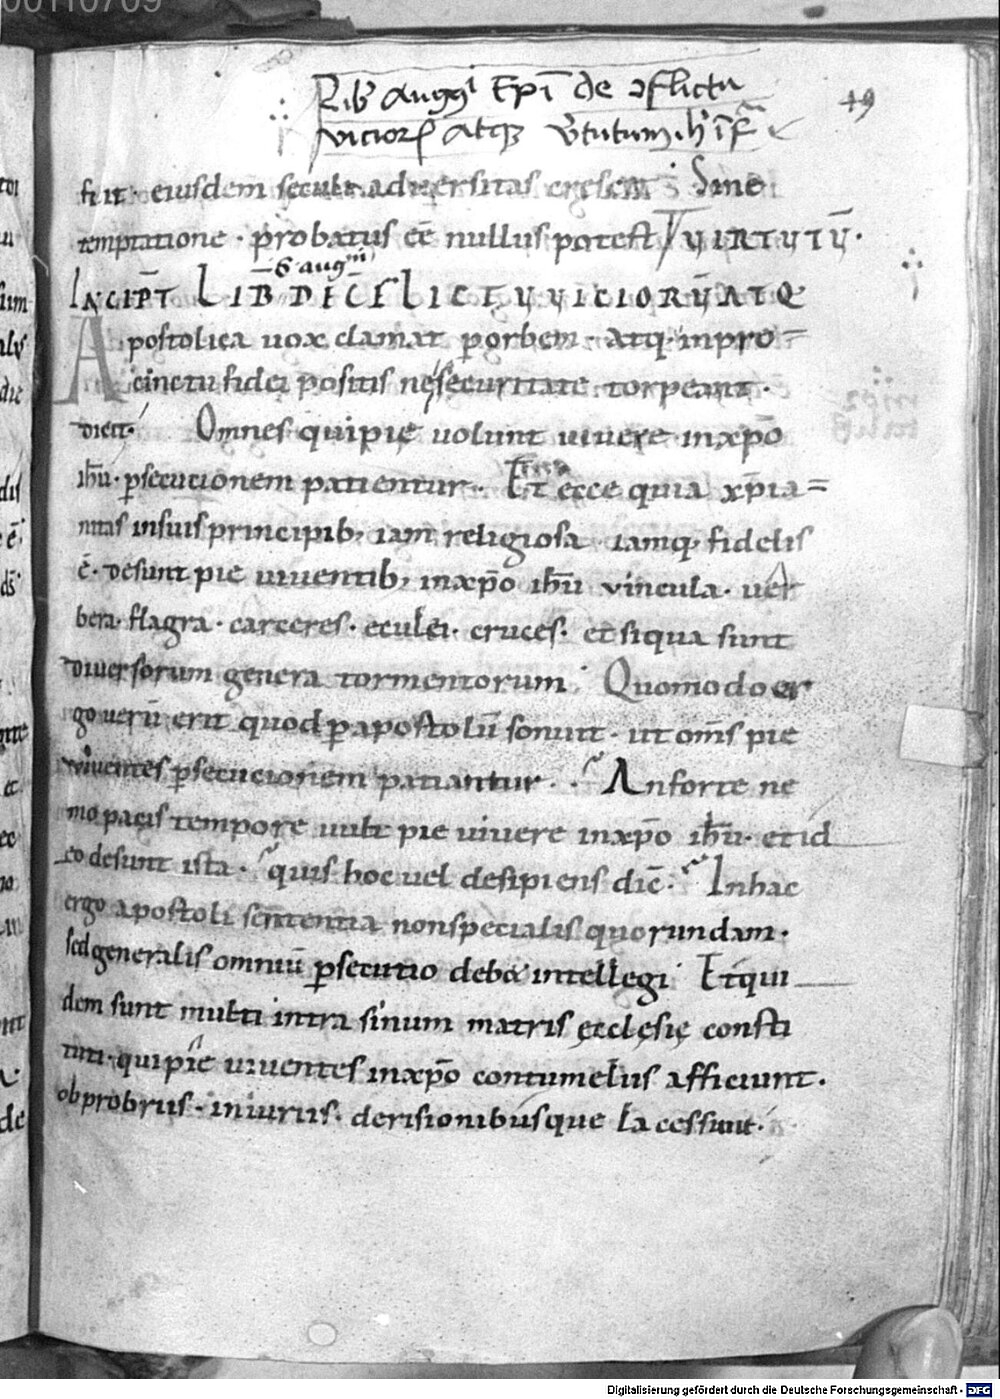 00110709
Lib̄ Augg̊ı Epī de ↄflictu
vicioꝝ atqꝫ v̄tutum. h̄ ī
49
fuit. eiusdem seculi aduersitas
temptatione. probatus eē nullus potest VIRTUTŪ.
s̄ augn̄i
INCIP̄T LIB̄ DE CŌFLICTU UICIORŪ ATQ
Apostolica uox clamat ꝑ orbem. atq; in pro
cinctu fidei positis ne securitate torpeant.
dicit. Omnes quipię uolunt uiuere in xp̄o
ih̄u. ꝑsecutionem patientur. Et ecce quia xp̄ia=
nitas in suis principib; iam religiosa. iamq; fidelis
ē. desunt pie uiuentib; in xp̄o ih̄u vincula. uer
bera. flagra. carceres. eculei. cruces. et si qua sunt
diuersorum genera tormentorum. Quomodo er
go uerū erit quod ꝑ apostolū sonuit. ut om̄s pie
uiuentes ꝑsecucionem patiantur. An forte ne
mo pacis tempore uult pie uiuere in xp̄o ih̄u. et id
eo desunt ista. quis hoc uel desipiens dic̄. In hac
ergo apostoli sententia non specialis quorundam.
sed generalis omniū ꝑsecutio debet intellegi. Et qui
dem sunt multi intra sinum matris ęcclesię consti
tuti. qui pie uiuentes in xp̄o contumeliis afficiunt.
obprobriis. iniuriis. derisionibusque lacessunt.
Digitalisierung gefördert durch die Deutsche Forschungsgemeinschaft - DFG